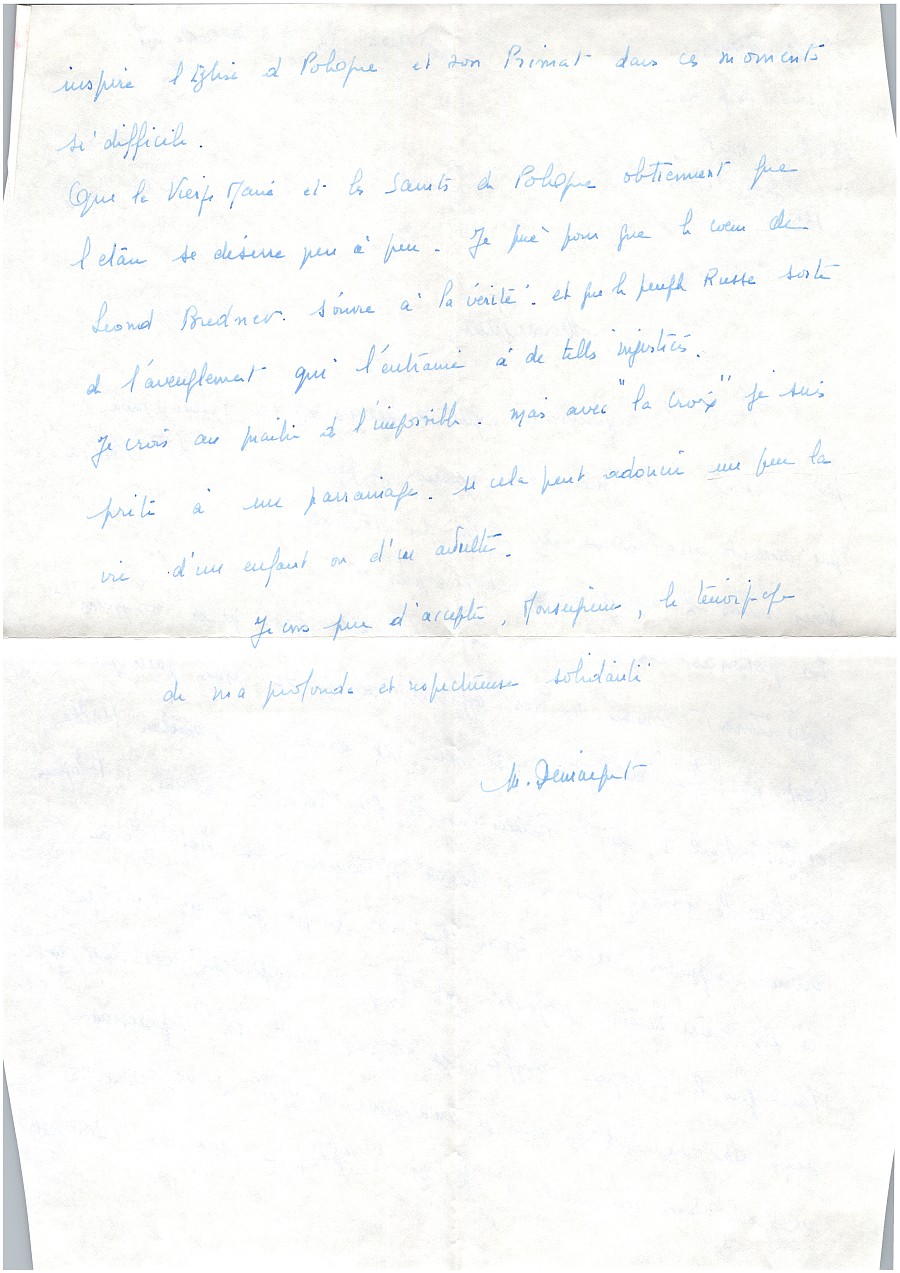 inspire l'Eglise de Pologne et son Primat dans ces moments
si difficile.
Que la Vierge Marie et les Saints de Pologne obtiennent que
l'étau se desserre peu à peu. Je prie pour que le coeur de
Léonid Brednev. s'ouvre à la vérité. et que le peuple Russe sorte
de l'aveuglement qui l'entraine à de telles injustices.
Je crois au et à l'impossible. mais avec "la Croix" je suis
prête à un parrainage. si cela peut adoucir un peu la
vie d'un enfant ou d'un adulte.
Je vous prie d'accepter, Monseigneur, le témoignage
de ma profonde et respectueuse solidarité
M.